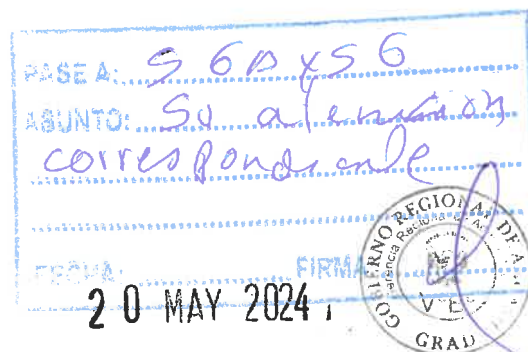 PASE A: S G D y S G
ASUNTO: Su atención
correspondiente
FECHA: FIRMA
20 MAY 2024
GOBIERNO REGIONAL DE A
Gerencia Regional de A
V°B°
GRAD